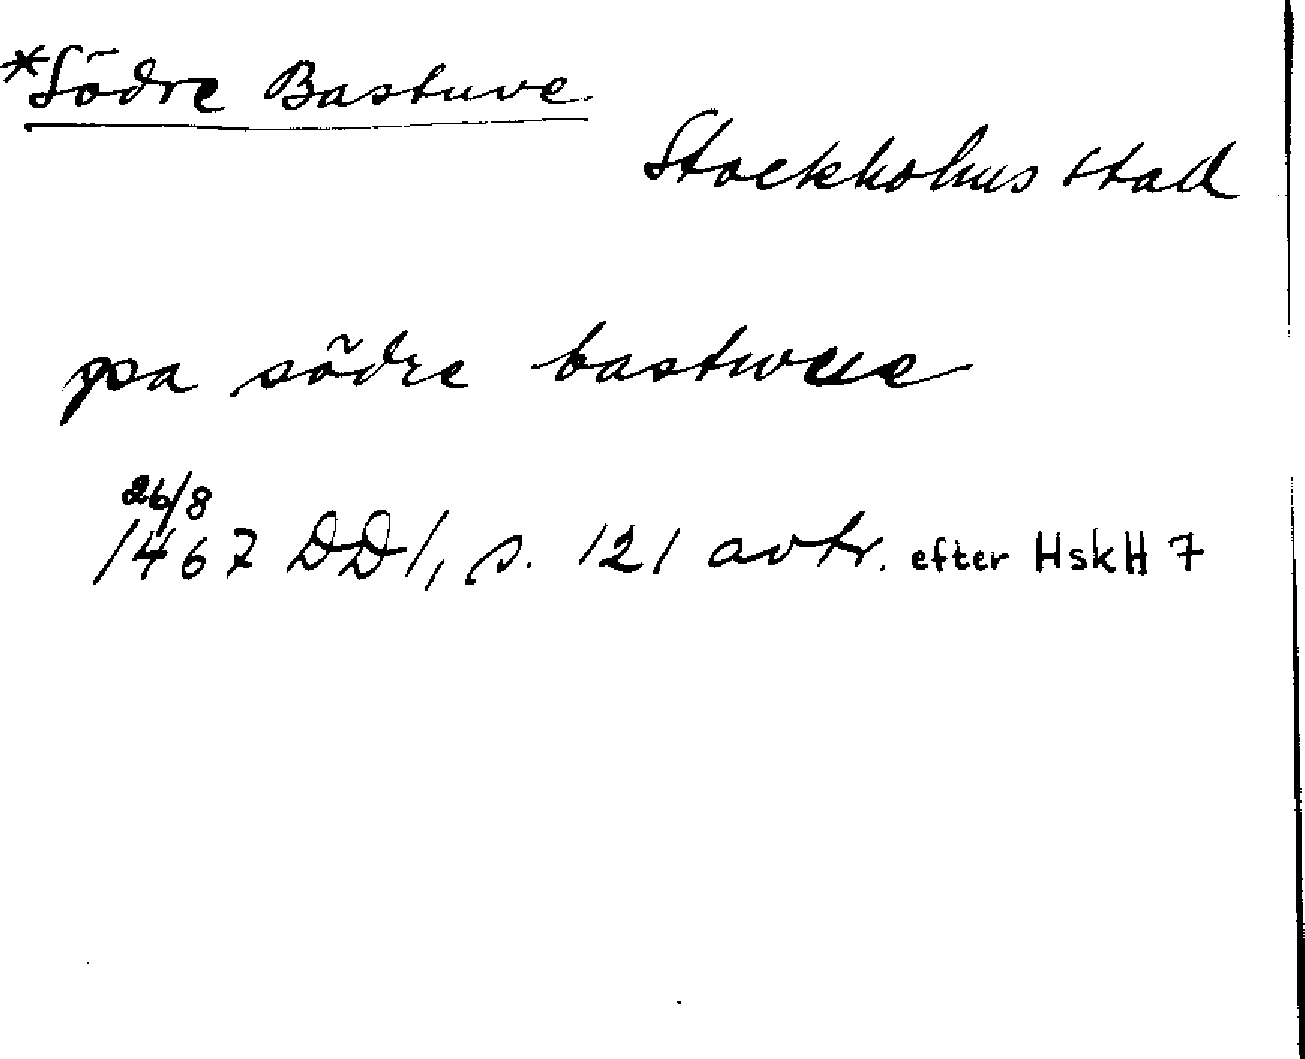 *Södre Bastuve
Stockholms stad
pa södre bastwe
26/8
1467 DD1, s. 121 avtr. efter HskH 7